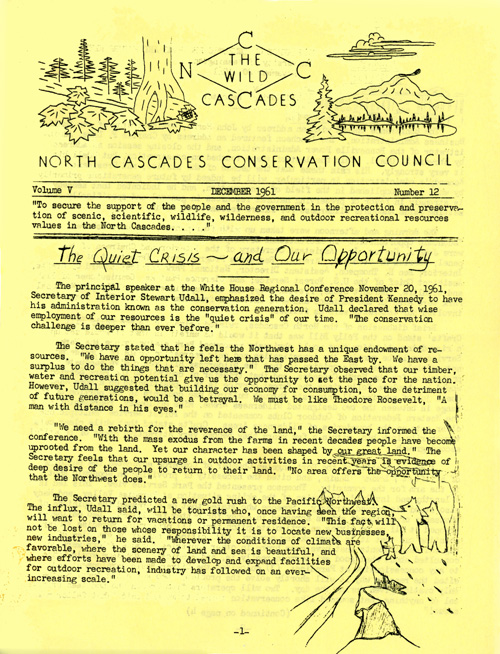 C
THE
N WILD C
CASCADES
NORTH CASCADES CONSERVATION COUNCIL
Volume V DECEMBER 1961 Number 12
"To secure the support of the people and the government in the protection and preserva-
tion of scenic, scientific, wildlife, wilderness, and outdoor recreational resources
values in the North Cascades. . . ."
The Quiet CRISIS ~ and Our Opportunity
The principal speaker at the White House Regional Conference November 20, 1961,
Secretary of Interior Stewart Udall, emphasized the desire of President Kennedy to have
his administration known as the conservation generation. Udall declared that wise
employment of our resources is the "quiet crisis" of our time. "The conservation
challenge is deeper than ever before."
The Secretary stated that he feels the Northwest has a unique endowment of re-
sources. "We have an opportunity left here that has passed the East by. We have a
surplus to do the things that are necessary." The Secretary observed that our timber,
water and recreation potential give us the opportunity to set the pace for the nation.
However, Udall suggested that building our economy for consumption, to the detriment
of future generations, would be a betrayal. We must be like Theodore Roosevelt, "A
man with distance in his eyes."
"We need a rebirth for the reverence of the land," the Secretary informed the
conference. "With the mass exodus from the farms in recent decades people have become
uprooted from the land. Yet our character has been shaped by our great land." The
Secretary feels that our upsurge in outdoor activities in recent years is evidence of
deep desire of the people to return to their land. "No area offers the opportunity
that the Northwest does."
The Secretary predicted a new gold rush to the Pacific Northwest.
The influx, Udall said, will be tourists who, once having seen the region
will want to return for vacations or permanent residence. "This fact will
not be lost on those whose responsibility it is to locate new businesses,
new industries," he said. "Wherever the conditions of climate are
favorable, where the scenery of land and sea is beautiful, and
where efforts have been made to develop and expand facilities
for outdoor recreation, industry has followed on an ever-
increasing scale."
-1-